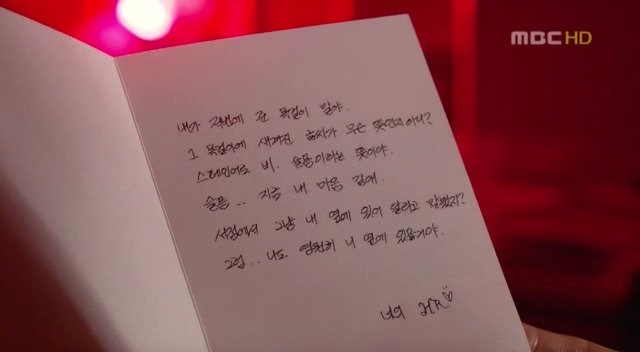 MBC HD
내가 저번에 준 목걸이 말야.
그 목걸이에 새겨진 글씨가 무슨 뜻인지 아니?
스페인어로 비. 슬픔이라는 뜻이야.
슬픔.. 지금 내 마음 같애.
서점에서 그냥 내 옆에 있어 달라고 말했지?
그럼.. 나도 영원히 니 옆에 있을거야.
너의 HR♡